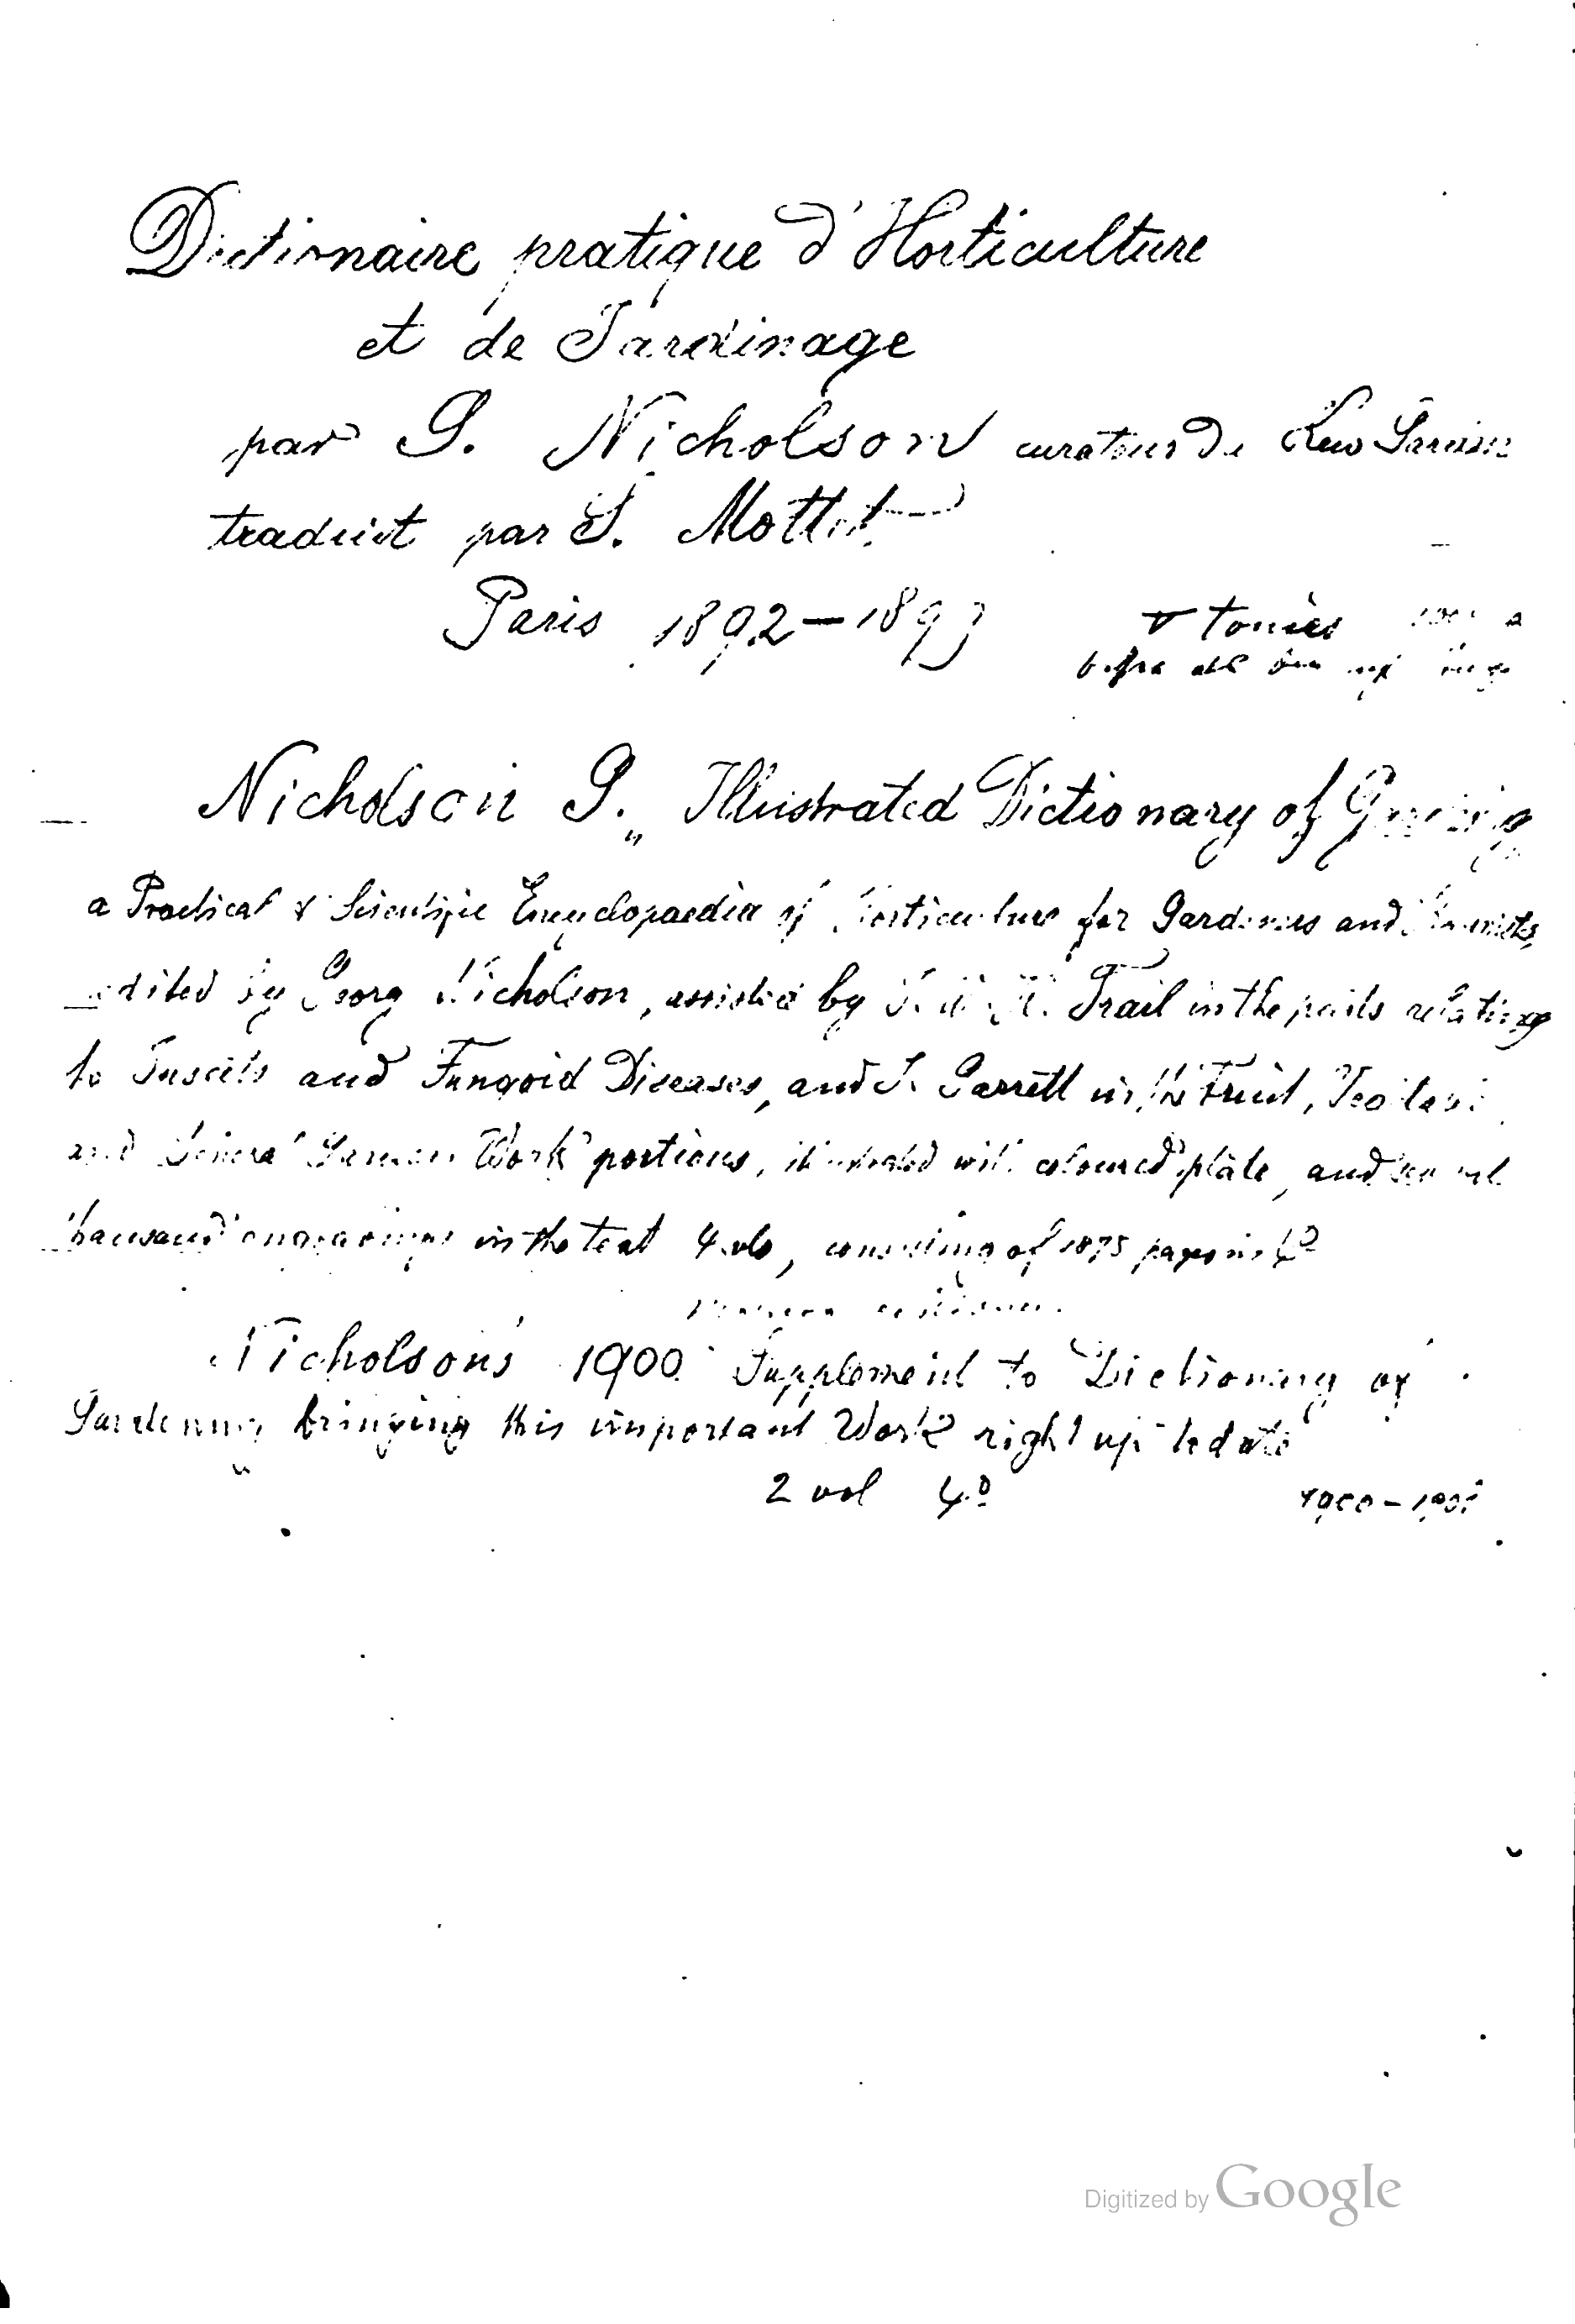 Dictionaire pratique d'Horticulture
et de Jardinage
par G. Nicholson curateur de Kew Garden
traduit par S. Mottet
Paris 1892–1893 tomes
Nicholson G. „ Illustrated Dictionary of Gardening
a Practical & Scientific Encyclopaedia of Horticulture for Gardeners and
edited by Georg Nicholson, assisted by Trail in the parts relating
to Insects and Fungoid Diseases, and J. Garrett in the Fruit,
and General Garden Work portions, illustrated with coloured plate, and several
thousand engravings in the text 4 vols, consisting of 1875 pages in 4º
Nicholson's 1900 Supplement to "Dictionary of
Gardening bringing this important Work right up to date
2 vol 4º
Digitized by Google